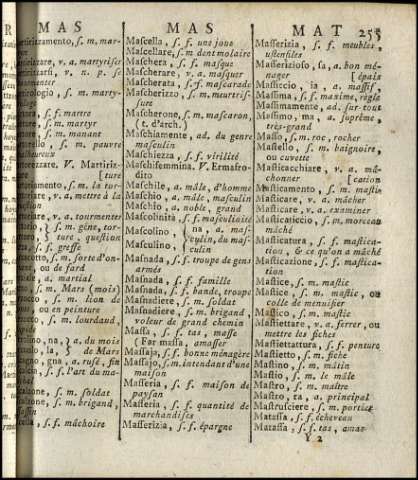 R MAS MAS MAT 255
martirizzamento, s. m. mar-
martirizzare, v. a. martyriser
v. n. p. se
s. m. martyr-
s. f. martre
s. m. martyr
s. m. manant
s. m. pauvre
V. Martiriz-
[ture
s. m. la tor-
v. a. mettre à la
v. a. tourmenter
s. m. gêne, tor-
ture, question
s. f. greffe
s. m. sorte d'on-
ou de fard
a. martial
s. m. Mars (mois)
s. m. lion de
ou en peinture
s. m. lourdaud,
na, a. du mois
la, de Mars
gna, a. rusé, fin
s. f. l'art du ma-
s. m. soldat
s. m. brigand,
s. f. mâchoire
Mascella, s. f. une joue
Mascellare, s. m. dent molaire
Maschera, s. f. masque
Mascherare, v. a. masquer
Mascherata, s. f. mascarade
Mascherizzo, s. m. meurtris-
sure
Mascherone, s. m. mascaron,
(t. d'arch.)
Maschiamente, ad. du genre
masculin
Maschiezza, s. f. virilité
Maschifemmina. V. Ermafro-
dito
Maschile, a. mâle, d'homme
Maschio, a. mâle, masculin
Maschio, a. noble, grand
Mascolinità, s. f. masculinité
Mascolino, } na, a. mas-
Masculino, } culin, du mas-
culin
Masnada, s. f. troupe de gens
armés
Masnada, s. f. famille
Masnada, s. f. bande, troupe
Masnadiere, s. m. soldat
Masnadiere, s. m. brigand,
voleur de grand chemin
Massa, s. f. tas, masse
(Far massa, amasser
Massaja, s. f. bonne ménagère
Massajo, s. m. intendant d'une
maison
Masseria, s. f. maison de
paysan
Masseria, s. f. quantité de
marchandises
Masserizia, s. f. épargne
Masserizia, s. f. meubles,
ustensiles
Masserizioso, sa, a. bon mé-
nager [épais
Massiccio, ia, a. massif,
Massima, s. f. maxime, règle
Massimamente, ad. sur-tout
Massimo, ma, a. suprême,
très-grand
Masso, s. m. roc, rocher
Mastello, s. m. baignoire,
ou cuvette
Masticacchiare, v. a. mâ-
chonner [cation
Masticamento, s. m. masti-
Masticare, v. a. mâcher
Masticare, v. a. examiner
Masticaticcio, s. m. morceau
mâché
Masticatura, s. f. mastica-
tion, & ce qu'on a mâché
Masticazione, s. f. mastica-
tion
Mastice, s. m. mastic
Mastice, s. m. mastic, ou
colle de menuisier
Mastico, s. m. mastic
Mastiettare, v. a. ferrer, ou
mettre les fiches
Mastiettatura, s. f. penture
Mastietto, s. m. fiche
Mastino, s. m. mâtin
Mastio, s. m. le mâle
Mastro, s. m. maître
Mastro, tra, a. principal
Mastrusciere, s. m. portier
Matassa, s. f. écheveau
Matassa, s. f. tas, amas
Y 2